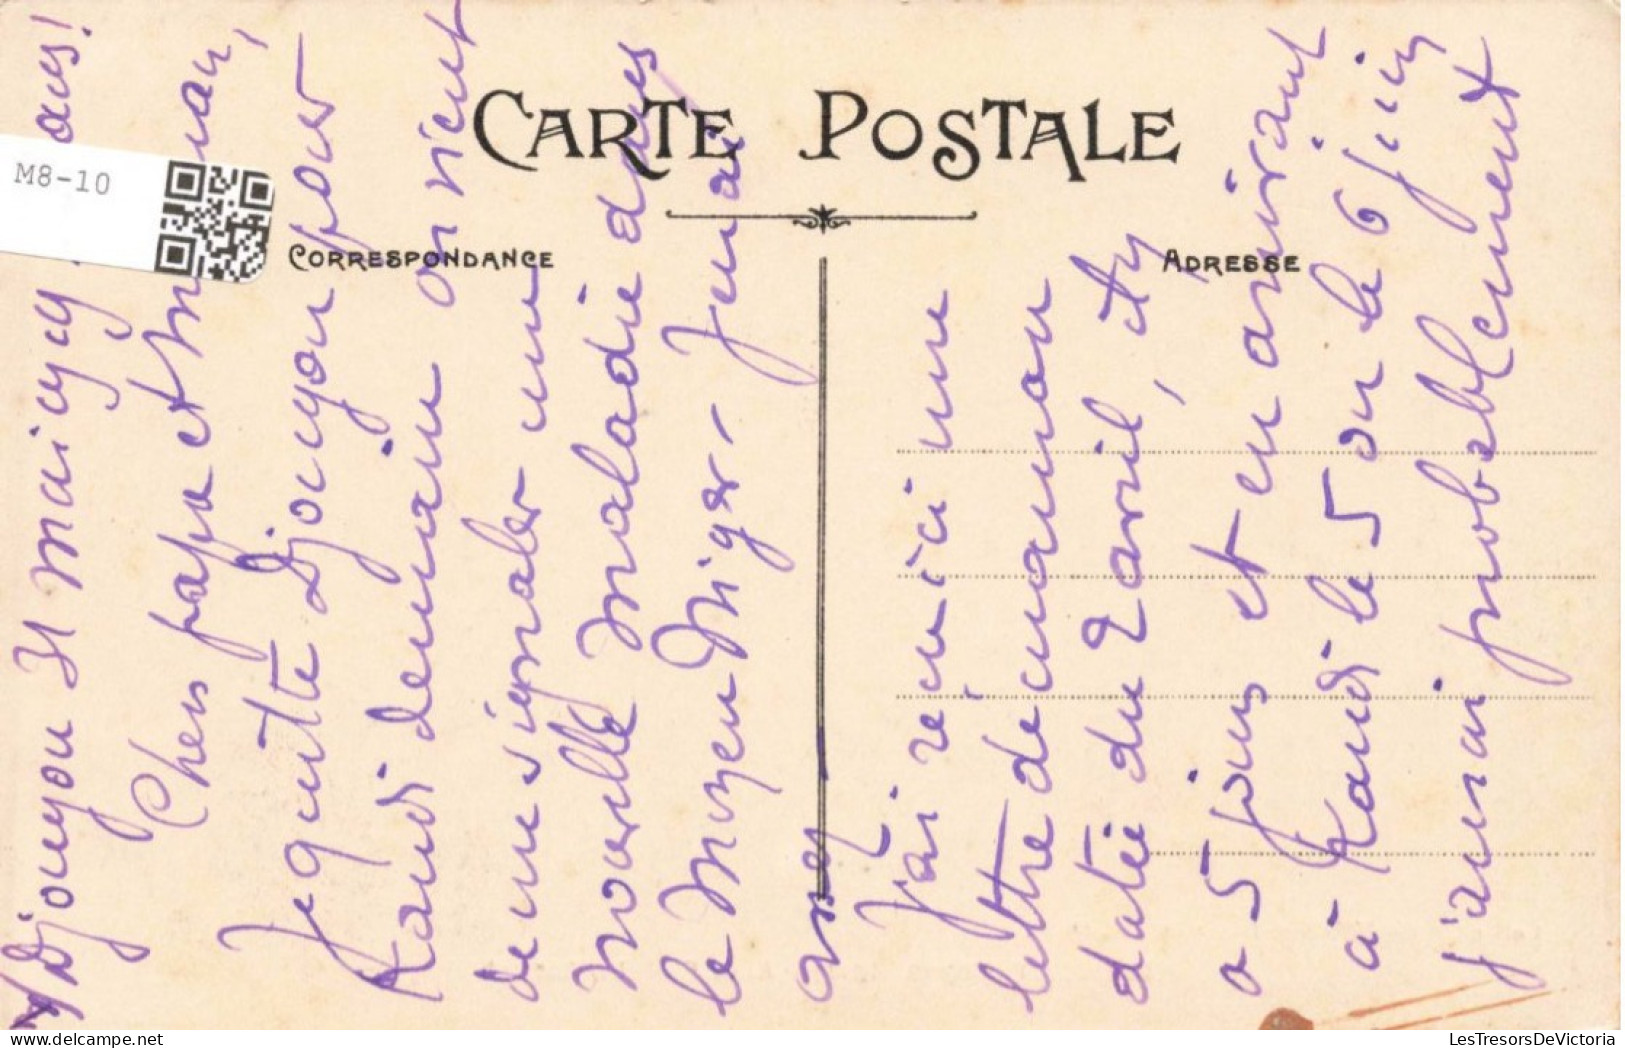 CARTE POSTALE
CORRESPONDANCE
ADRESSE
M8-10
Djougou 31 mai
Cher papa et
Je quitte Djougou pour
Kandi demain on vient
de me signaler une
nouvelle maladie dans
le Moyen Niger - Jenai
J'ai reçu ici une
lettre de maman
datée du 2 avril, il y
a 5 jours et en arrivant
à Kandi le 5 ou le 6 juin
j'aurai probablement
LesTresorsDeVictoria